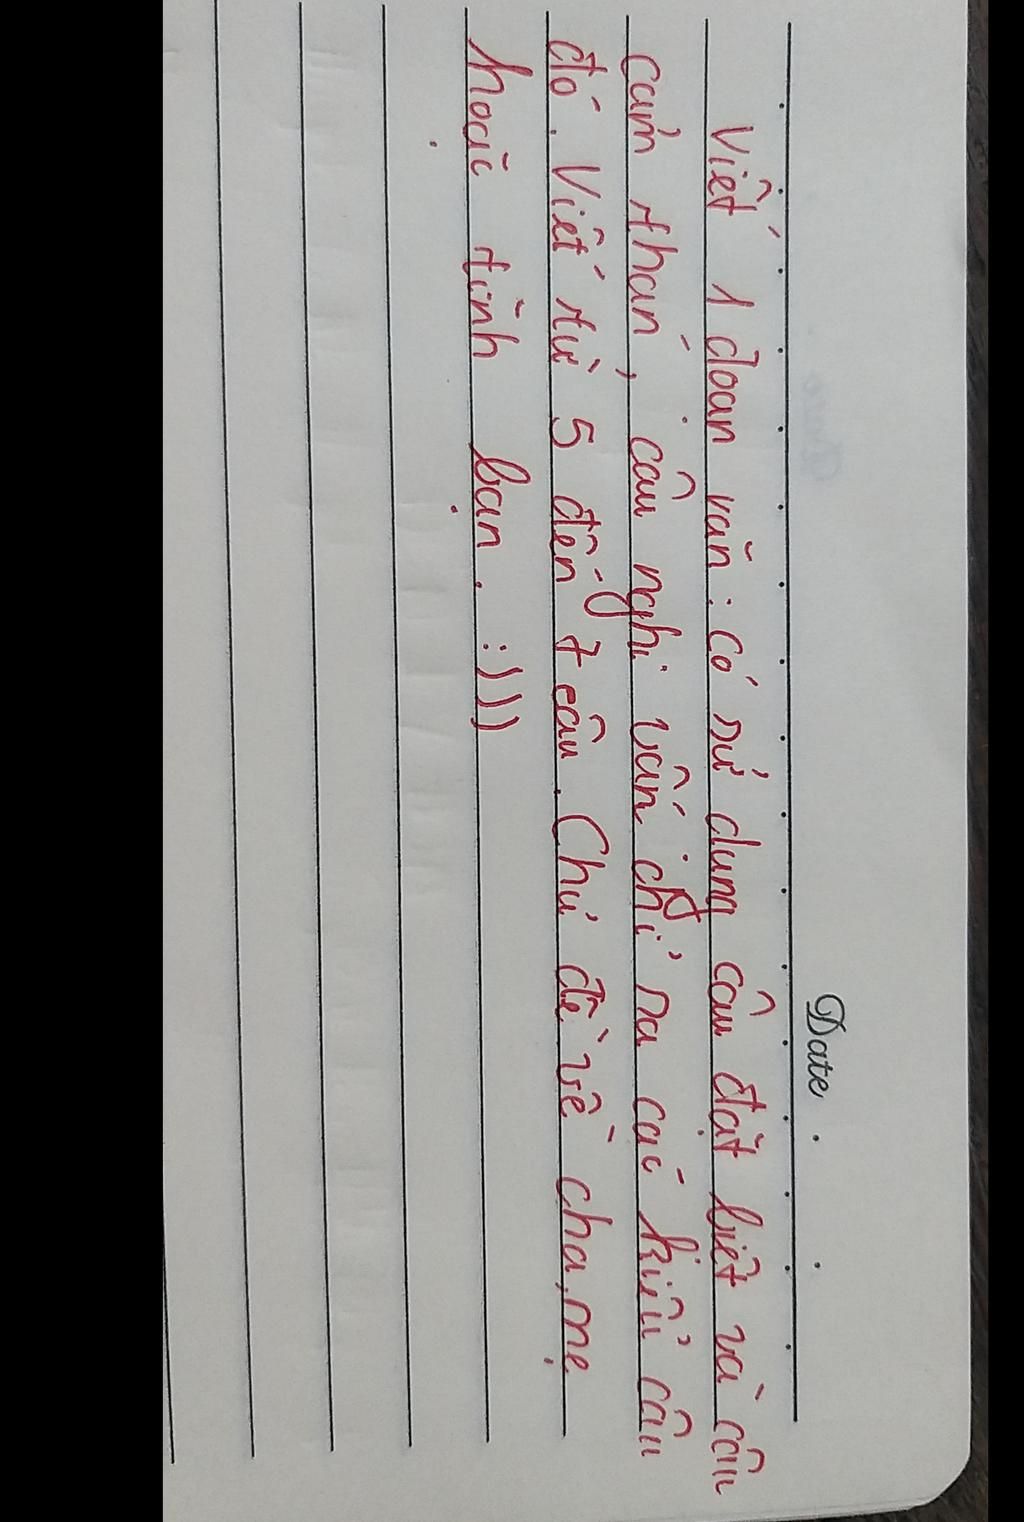 Date . .
Viết 1 đoạn văn: có sử dụng câu đặt biệt và câu
cảm thán, câu nghi vấn chỉ ra các kiểu câu
đó. Viết từ 5 đến 7 câu. Chủ đề về cha, mẹ
hoặc tình bạn. :)))